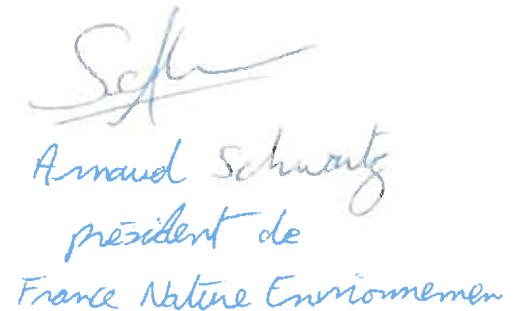 Arnaud Schwartz
président de
France Nature Environnemen